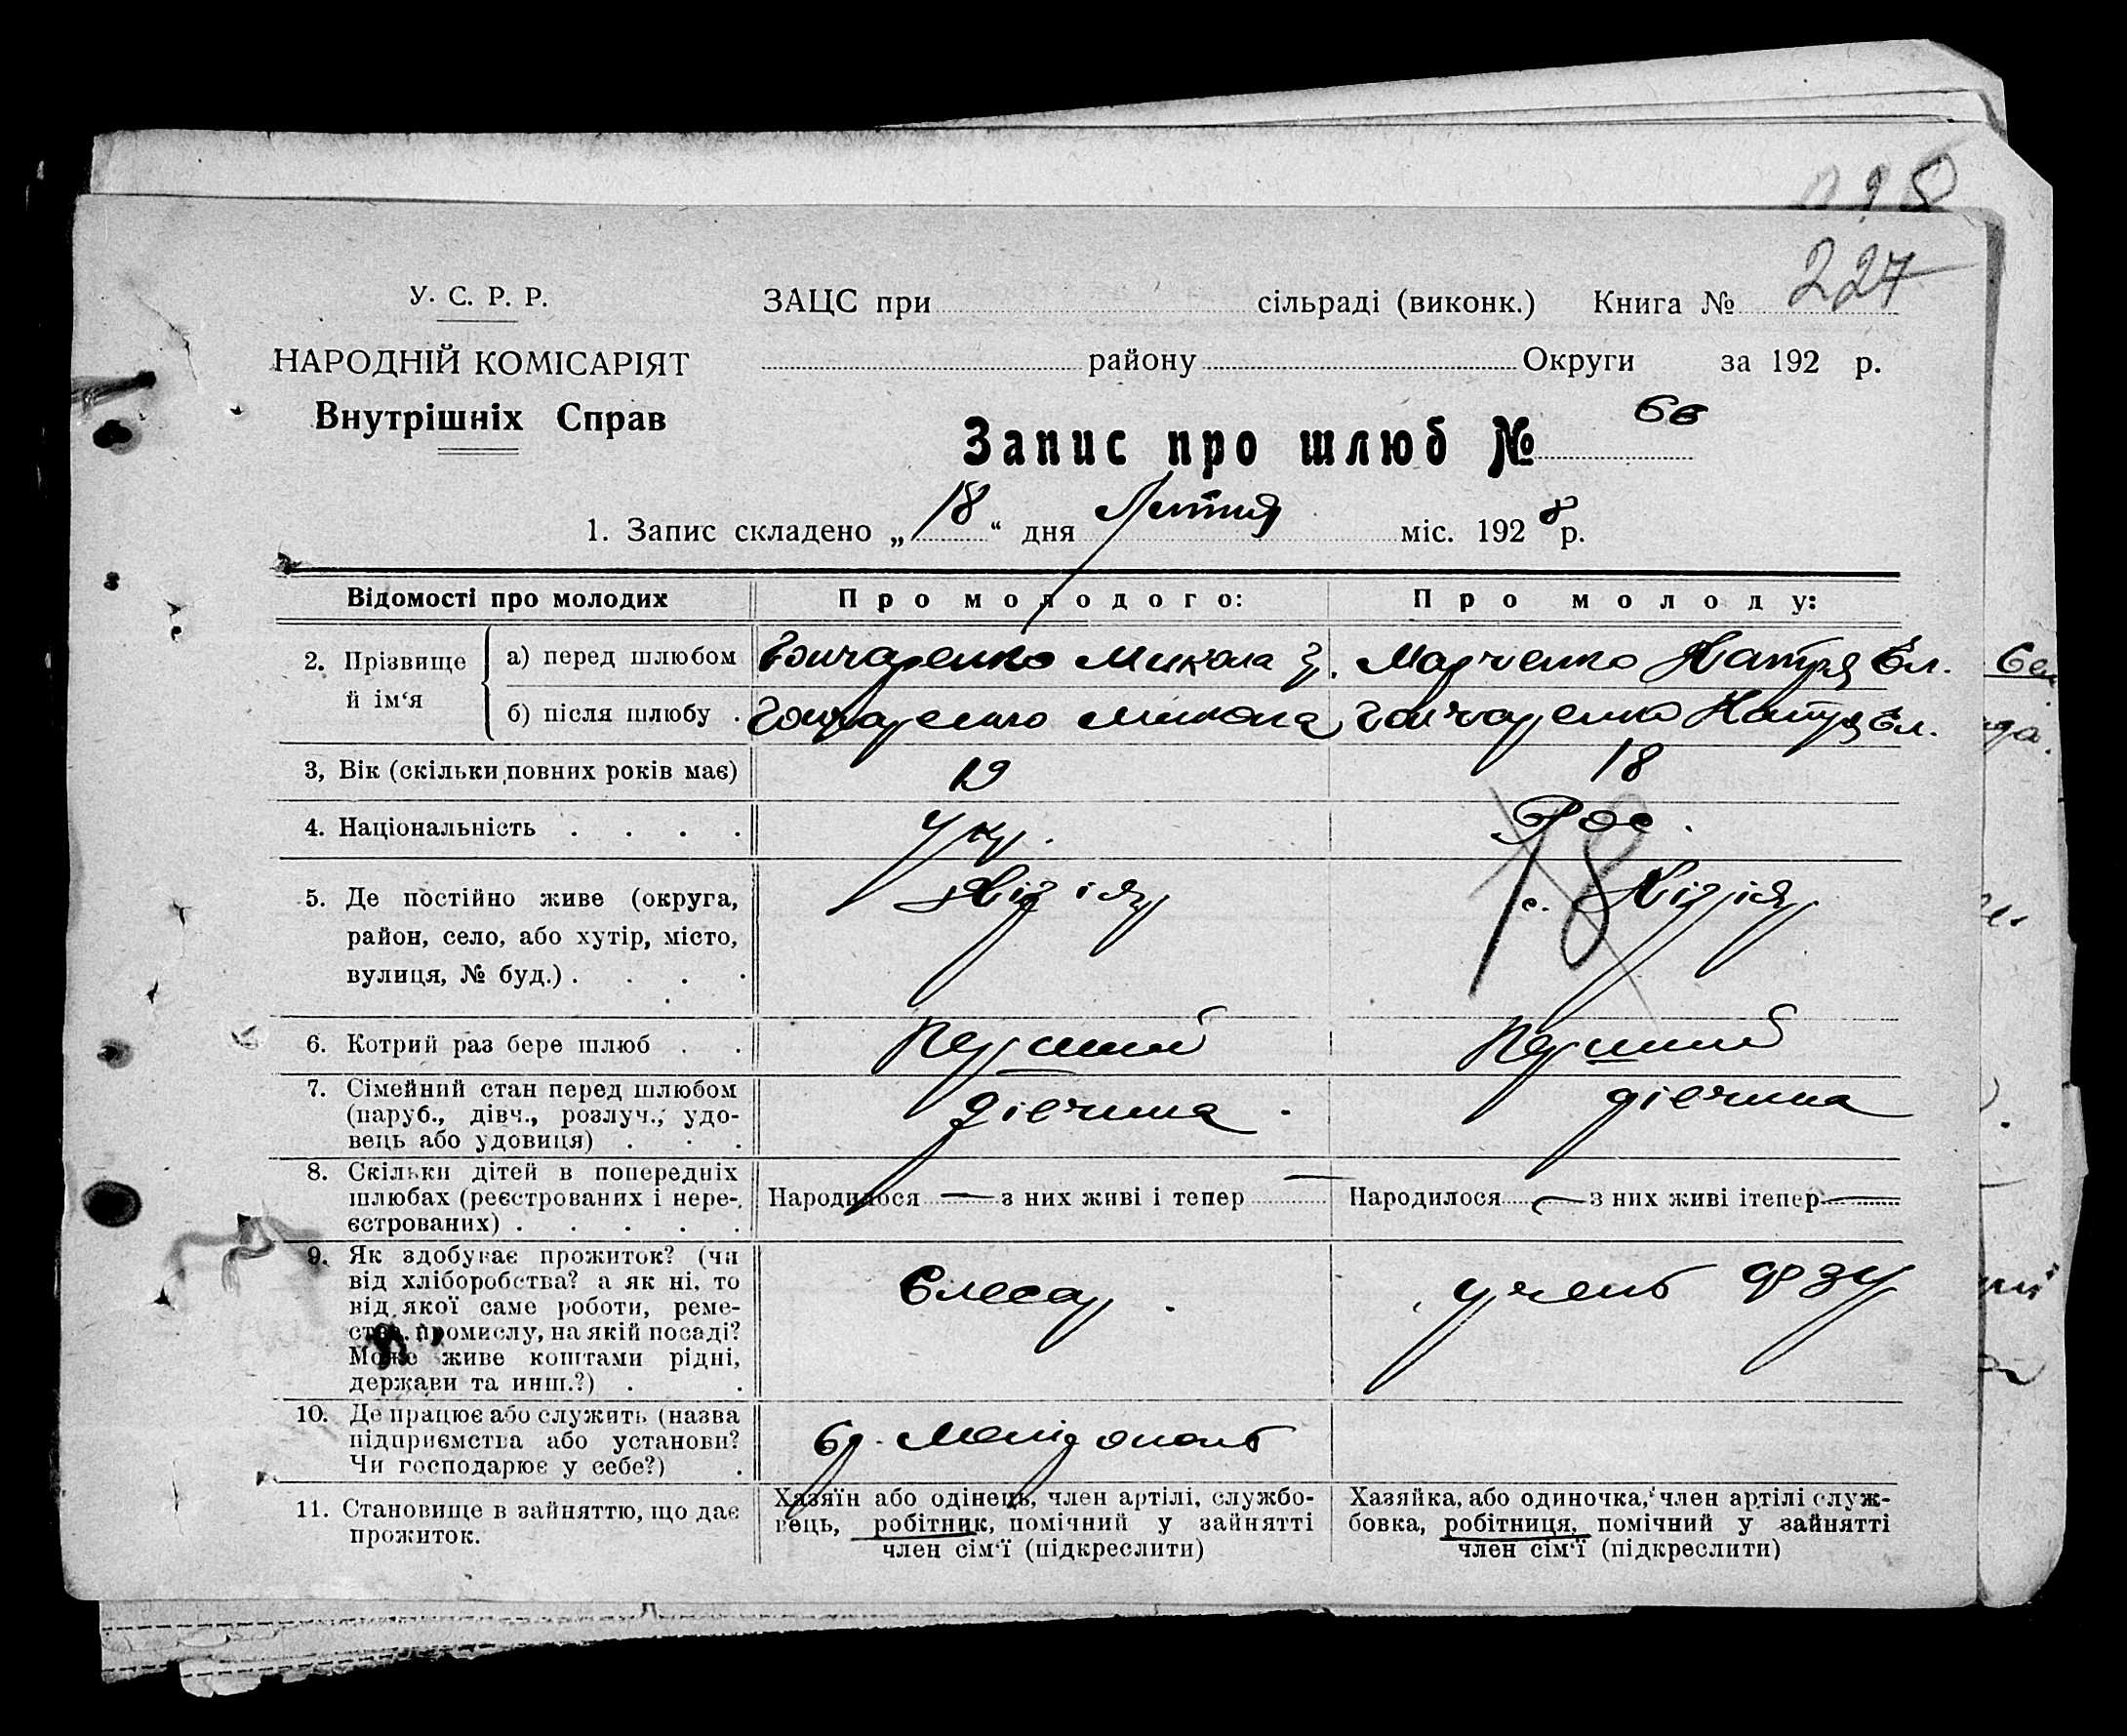 227
У. С. Р. Р.
ЗАЦС при сільраді (виконк.) Книга №
НАРОДНІЙ КОМІСАРІЯТ
району Округи за 192 р.
Внутрішніх Справ
Запис про шлюб № 66
1. Запис складено „ 18 “ дня Лютня міс. 192 8 р.
Відомості про молодих
Про молодого:
Про молоду:
2. Прізвище й ім‘я
а) перед шлюбом
Гончаренко Микола
Марченко Натря Єл.
б) після шлюбу .
Гончаренко Микола
Гончаренко Натря Єл.
3, Вік (скільки повних років має)
19
18
4. Національність . . . .
Укр.
Рос.
18
5. Де постійно живе (округа,
район, село, або хутір, місто,
вулиця, № буд.) . . . .
Кізіяр
с. Кізіяр
6. Котрий раз бере шлюб . .
Перший
Перший
7. Сімейний стан перед шлюбом
(паруб., дівч., розлуч., удо-
вець або удовиця) . . .
дівчина
дівчина
8. Скільки дітей в попередніх
шлюбах (реєстрованих і нере-
єстрованих) . . . . .
Народилося — з них живі і тепер —
Народилося — з них живі ітепер —
9. Як здобуває прожиток? (чи
від хліборобства? а як ні, то
від якої саме роботи, реме-
ства, промислу, на якій посаді?
Може живе коштами рідні,
держави та инш.?) . .
Слесар.
учень ФЗУ
10. Де працює або служить (назва
підприємства або установи?
Чи господарює у себе?) .
11. Становище в зайняттю, що дає
прожиток.
Хазяїн або одінець, член артілі, службо-
вець, робітник, помічний у зайнятті
член сім‘ї (підкреслити)
Хазяйка, або одиночка, член артілі служ-
бовка, робітниця, помічний у зайнятті
член сім‘ї (підкреслити)